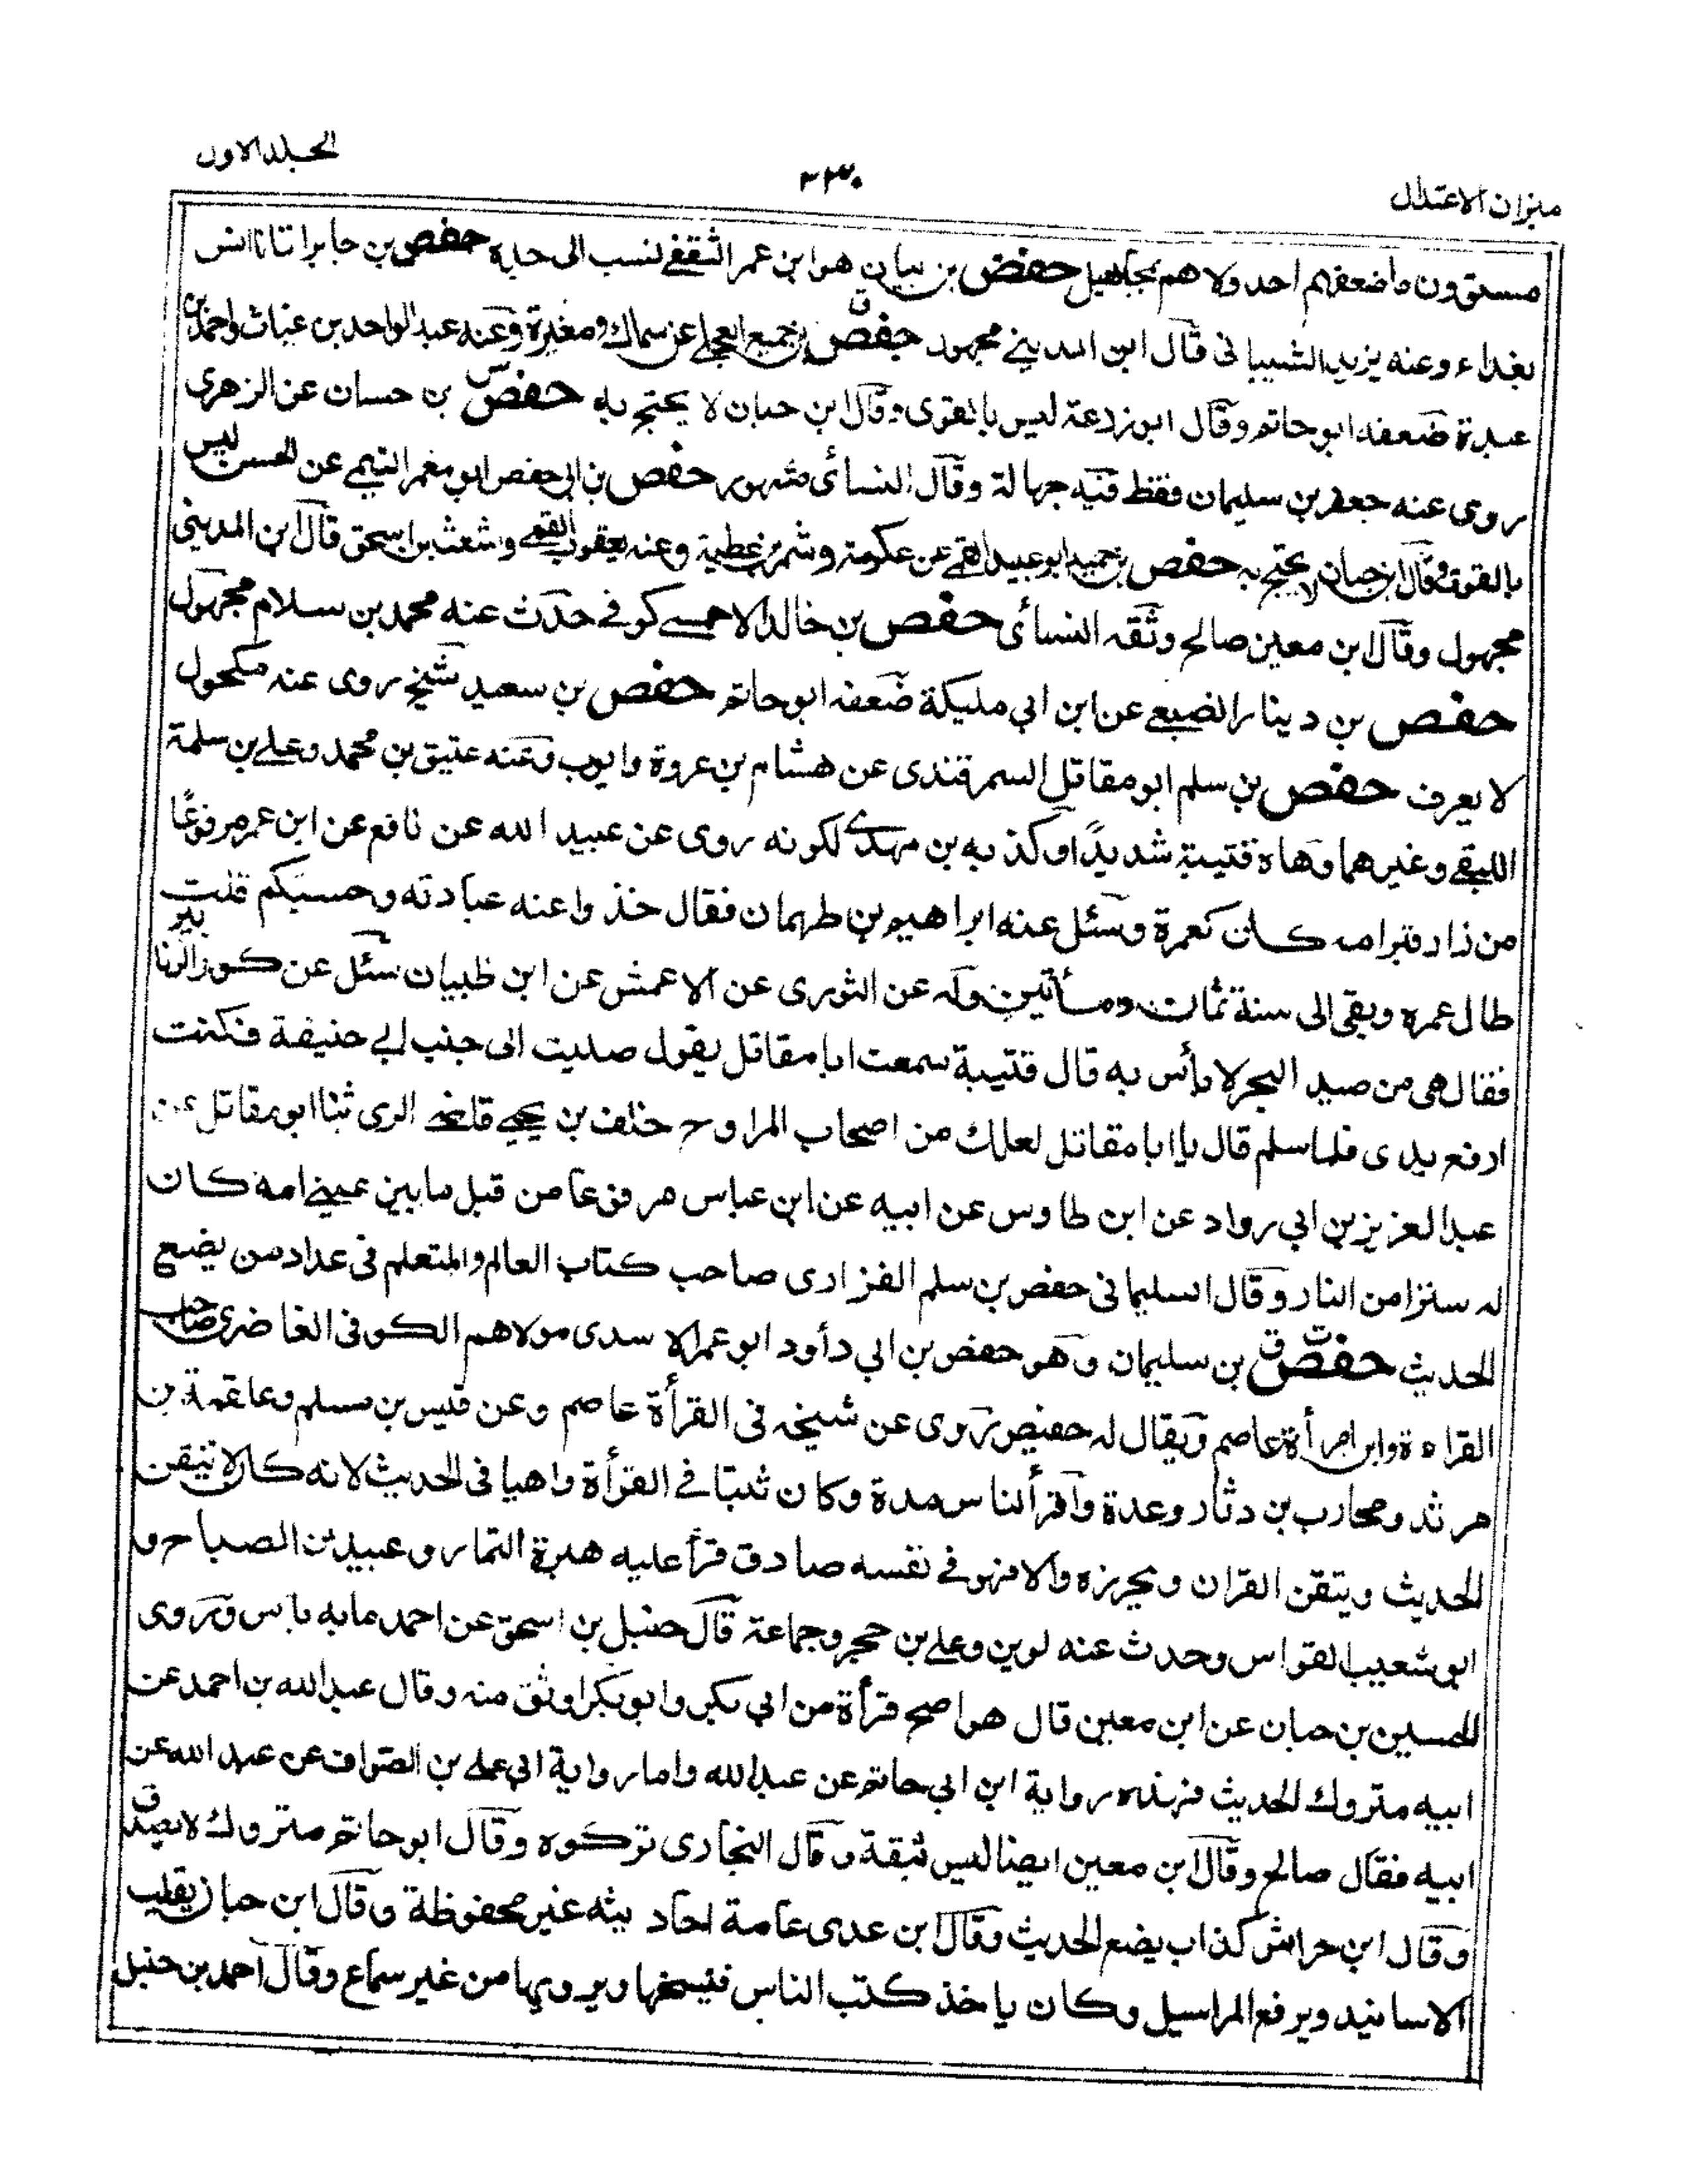 ميزان الاعتدال
٣٣٠
الجلد الاول
مستورون ما ضعفهم احد ولا هم بمجاهيل حفص بن بيان هو ابن عمر الثقفي نسب الى جده حفص بن جابر اتانا انس
بغداء وعنه يزيد الشيباني قال ابن المديني مجهول حفص ق بن جميع العجلي عن سماك ومغيرة وعنه عبد الواحد بن غياث واحمد بن
عبدة ضعفه ابو حاتم وقال ابو زرعة ليس بالقوى وقال ابن حبان لا يحتج به حفص س بن حسان عن الزهرى
روى عنه جعفر بن سليمان فقط فيه جهالة وقال النسائى مشهور حفص بن ابي حفص ابو معمر التيمي عن الحسن ليس
بالقوى وقال ابن حبان لا يحتج به حفص بن حميد ابو عبيد القمي عن عكرمة وشمر بن عطية وعنه يعقوب القمي واشعث بن اسحق قال ابن المديني
مجهول وقال ابن معين صالح وثقه النسائى حفص بن خالد الاحمسي كوفي حدث عنه محمد بن سلام مجهول
حفص بن دينار الضبعي عن ابن ابي مليكة ضعفه ابو حاتم حفص بن سعيد شيخ روى عنه مكحول
لا يعرف حفص بن سلم ابو مقاتل السمرقندى عن هشام بن عروة وايوب وعنه عتيق بن محمد وعلي بن سلمة
اللبقي وغيرهما وهاه قتيبة شديدًا وكذبه بن مهدى لكونه روى عن عبيد الله عن نافع عن ابن عمر مرفوعًا
من زار قبر امه كان كعمرة وسئل عنه ابراهيم بن طهمان فقال خذوا عنه عبادته وحسبكم قلت
طال عمره وبقى الى سنة ثمان ومأتين وله عن الثورى عن الاعمش عن ابن ظبيان سئل عن كور الزنابير
فقال هى من صيد البحر لا بأس به قال قتيبة سمعت ابا مقاتل يقول صليت الى جنب ابي حنيفة فكنت
ارفع يدى فلما سلم قال يا ابا مقاتل لعلك من اصحاب المراوح خلف بن يحيى قاضي الرى ثنا ابو مقاتل عن
عبد العزيز بن ابي رواد عن ابن طاوس عن ابيه عن ابن عباس مرفوعا من قبل ما بين عيني امه كان
له سترا من النار وقال السليماني حفص بن سلم الفزارى صاحب كتاب العالم والمتعلم في عداد من يضع
الحديث حفص ت ق بن سليمان وهو حفص بن ابي دأود ابو عمر الاسدى مولاهم الكوفى الغاضرى صاحب
القراءة وابن امرأة عاصم ويقال له حفيص روى عن شيخه في القرأة عاصم وعن قيس بن مسلم وعلقمة بن
مرثد ومحارب بن دثار وعدة وأقرأ الناس مدة وكان ثبتا في القرأة واهيا في الحديث لانه كان لا يتقن
الحديث ويتقن القران ويجرزه والا فهو في نفسه صادق قرأ عليه هبيرة التمار وعبيد بن الصباح و
ابو شعيب القواس وحدث عنه لوين وعلي بن حجر وجماعة قال حنبل بن اسحق عن احمد ما به باس وروى
الحسين بن حبان عن ابن معين قال هو اصح قرأة من ابي بكر وابو بكر اوثق منه وقال عبد الله بن احمد عن
ابيه متروك الحديث فهذه رواية ابن ابي حاتم عن عبد الله واما رواية ابي علي بن الصواف عن عبد الله عن
ابيه فقال صالح وقال ابن معين ايضا ليس بثقة وقال البخارى تركوه وقال ابو حاتم متروك لا يصدق
وقال ابن خراش كذاب يضع الحديث وقال ابن عدى عامة احاديثه غير محفوظة وقال ابن حبان يقلب
الاسانيد ويرفع المراسيل وكان ياخذ كتب الناس فينسخها ويرويها من غير سماع وقال احمد بن حنبل